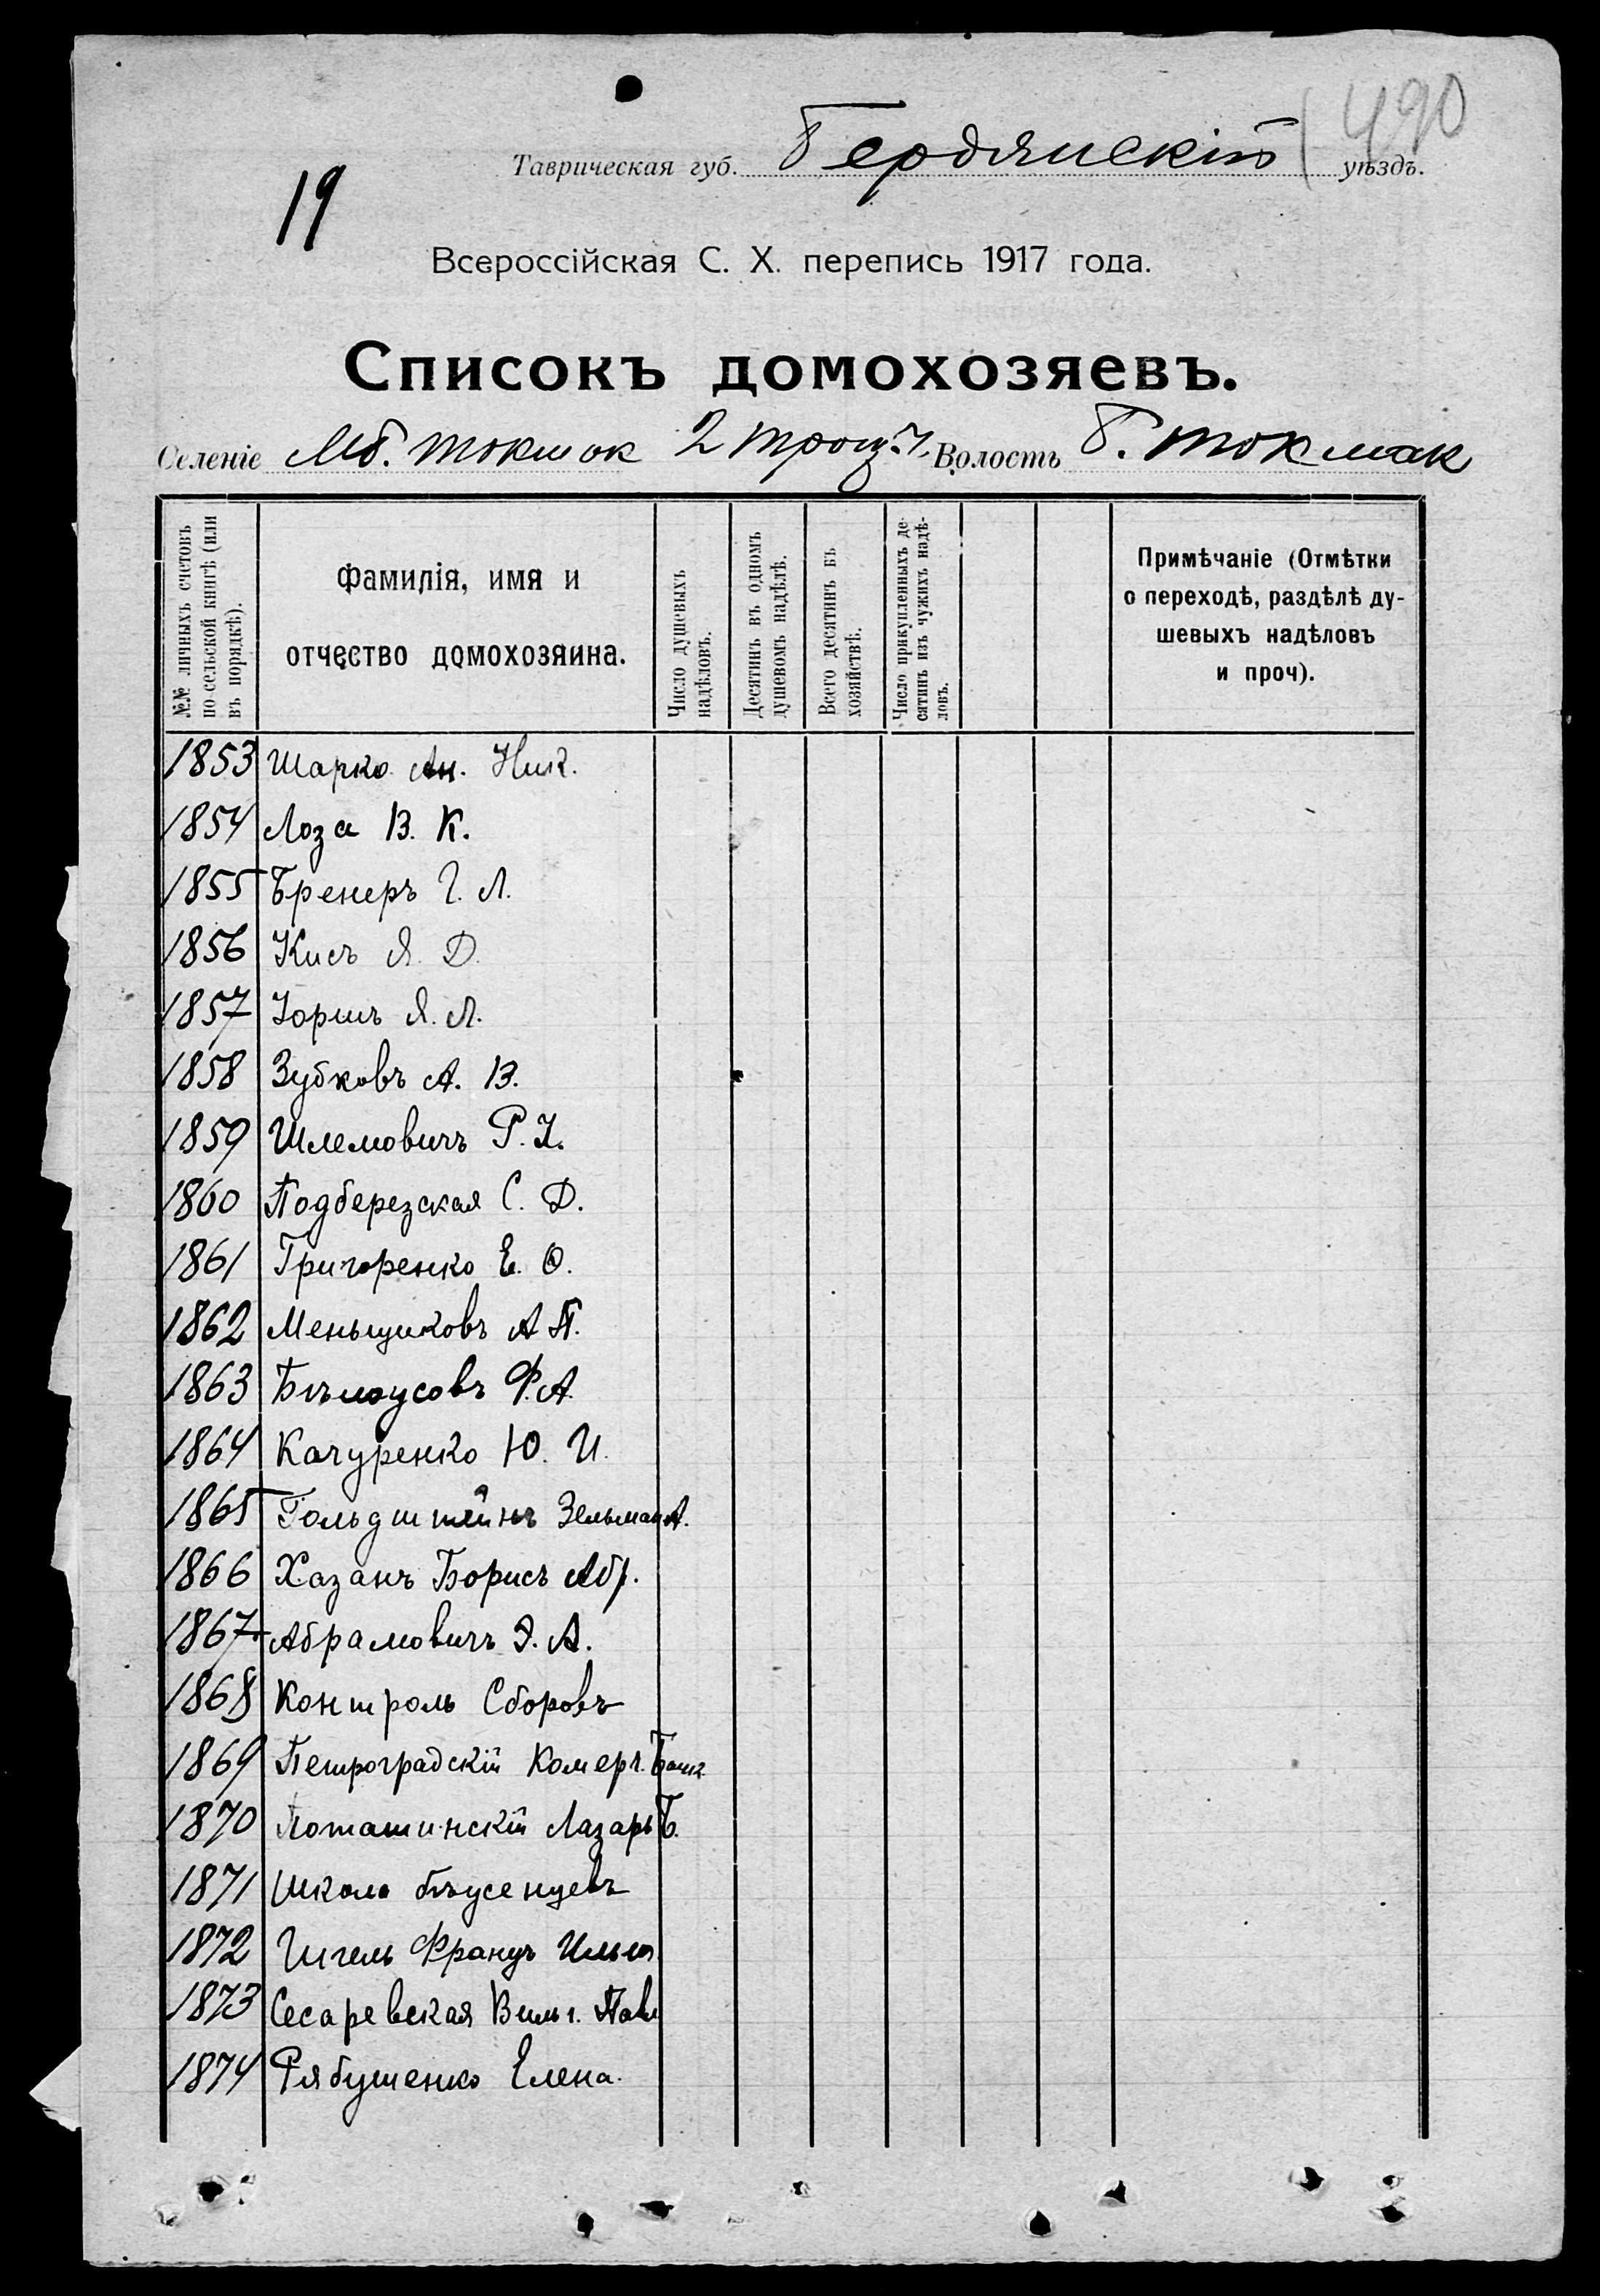 490
Таврическая губ. Бердянскій уѣздъ.
19
Всероссійская С. Х. перепись 1917 года.
Списокъ домохозяевъ.
Селеніе Мб. Токмок 2 троц. ч. Волость Б. Токмак
№№ личныхъ счетовъ по сельской книгѣ (или въ порядкѣ).
Фамилія, имя и отчество домохозяина.
Число душевыхъ надѣловъ.
Десятинъ въ одномъ душевомъ надѣлѣ.
Всего десятинъ въ хозяйствѣ.
Число прикупленныхъ десятинъ изъ чужихъ надѣловъ.
Примѣчаніе (Отмѣтки
о переходѣ, раздѣлѣ ду-
шевыхъ надѣловъ
и проч).
1853 Шарко Ан. Ник.
1854 Лоза В. К.
1855 Бренеръ Г. Л.
1856 Кисъ Я. Д.
1857 Іоришъ Я. Л.
1858 Зубковъ А. В.
1859 Шлемовичъ Р. І.
1860 Подберезская С. Д.
1861 Григоренко Е. О.
1862 Меньщиковъ А П.
1863 Бѣлоусовъ Ф. А.
1864 Качуренко Ю. И.
1865 Гольдштейнъ Зельман А.
1866 Хазанъ Борисъ Абр.
1867 Абрамовичъ Э. А.
1868 Контроль Сборовъ
1869 Петроградскій Комерч. Банк
1870 Поташинскій Лазарь Б.
1871 Школа бѣженцевъ
1872 Франць Ильич
1873 Сесаревская Вильг. Павл
1874 Рябушенко Елена.